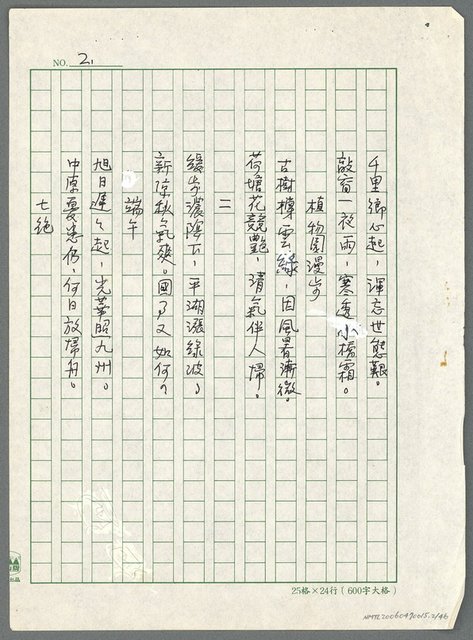 NO. 2.
千里鄉心起，渾忘世態艱。
敲窗一夜雨，寒透小橋霜。
植物園漫步
古樹樽雲綠，因風暑漸微。
荷塘花競艷，清氣伴人歸。
二
緩步濃陰下，平湖漲綠波，
新涼秋氣爽。國事又如何？
端午
旭日遲遲起，光華照九州。
中原憂患仍，何日放歸舟。
七絕
25格×24行（600字大格）
NMTL20060490015.2/46